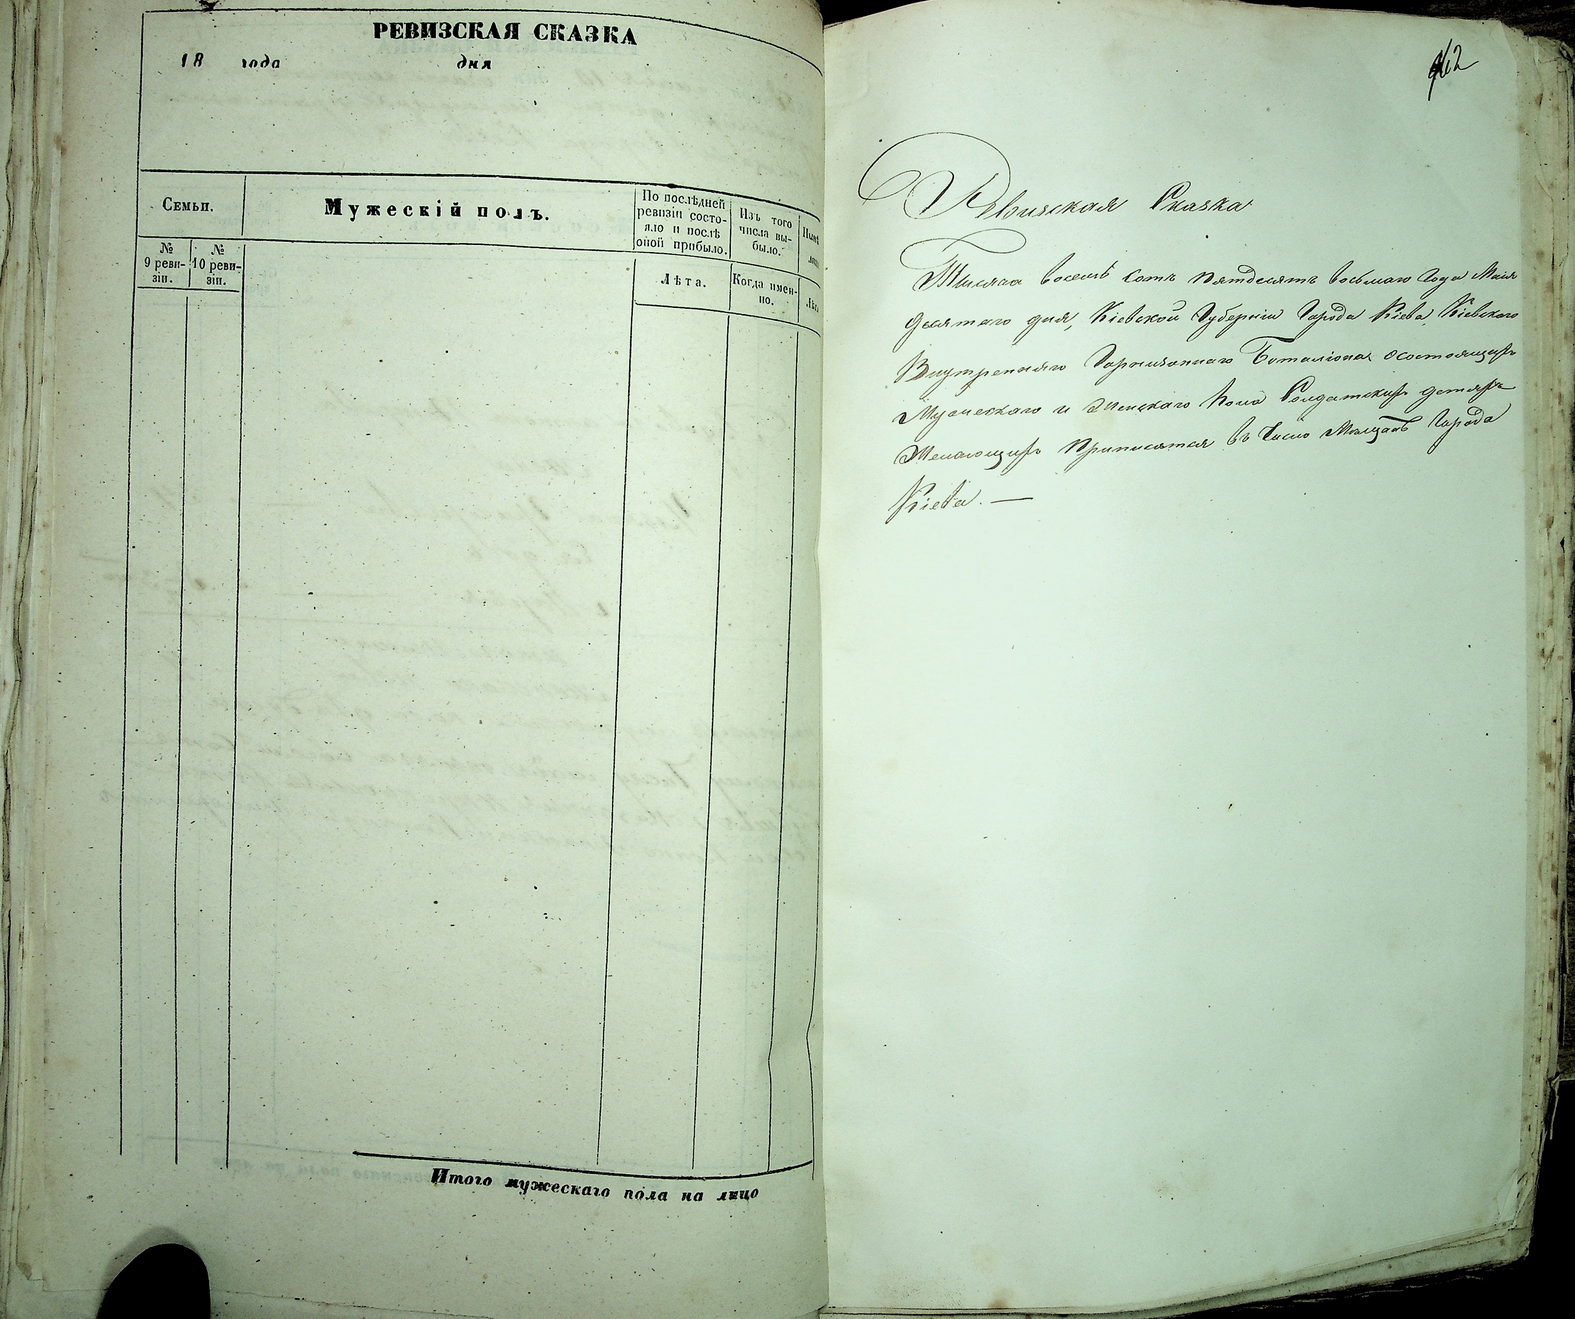 РЕВИЗСКАЯ СКАЗКА
18 года дня
Семьи.
Мужескій полъ.
По послѣдней
ревизіи состо-
яло и послѣ
оной прибыло.
Изъ того
числа вы-
было.
№
9 реви-
зіи.
№
10 реви-
зіи.
Лѣта.
Когда имен-
но.
Итого мужескаго пола на лицо
962
Ревизская Сказка
Тысяча восемь сотъ пятдесятъ восьмаго Года Маія
десятаго дня, Кіевской Губерніи Города Кіева, Кіевскаго
Внутренняго Гарнизоннаго Баталіона, о состоящихъ
Мужескаго и Женскаго Пола Солдатскихъ детяхъ
Желающихъ Приписатся въ Число Мещанъ Города
Кіева. —